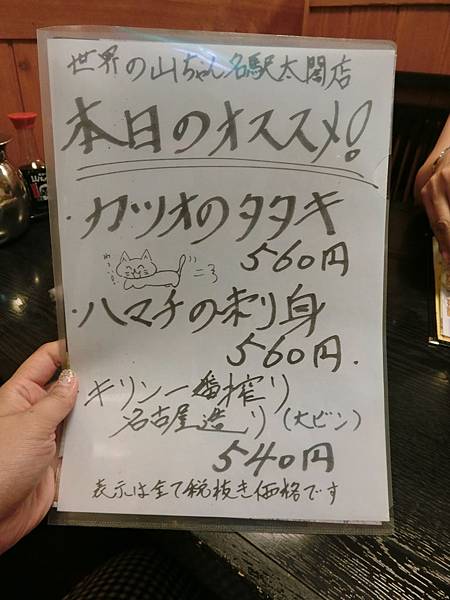 世界の山ちゃん名駅太閤店
本日のオススメ！
・カツオのタタキ
560円
・ハマチの刺り身
560円.
キリン一番搾り
名古屋造り(大ビン)
540円
表示は全て税抜き価格です